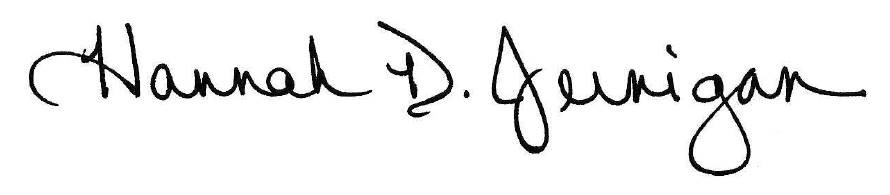 Hannah D. Jernigan